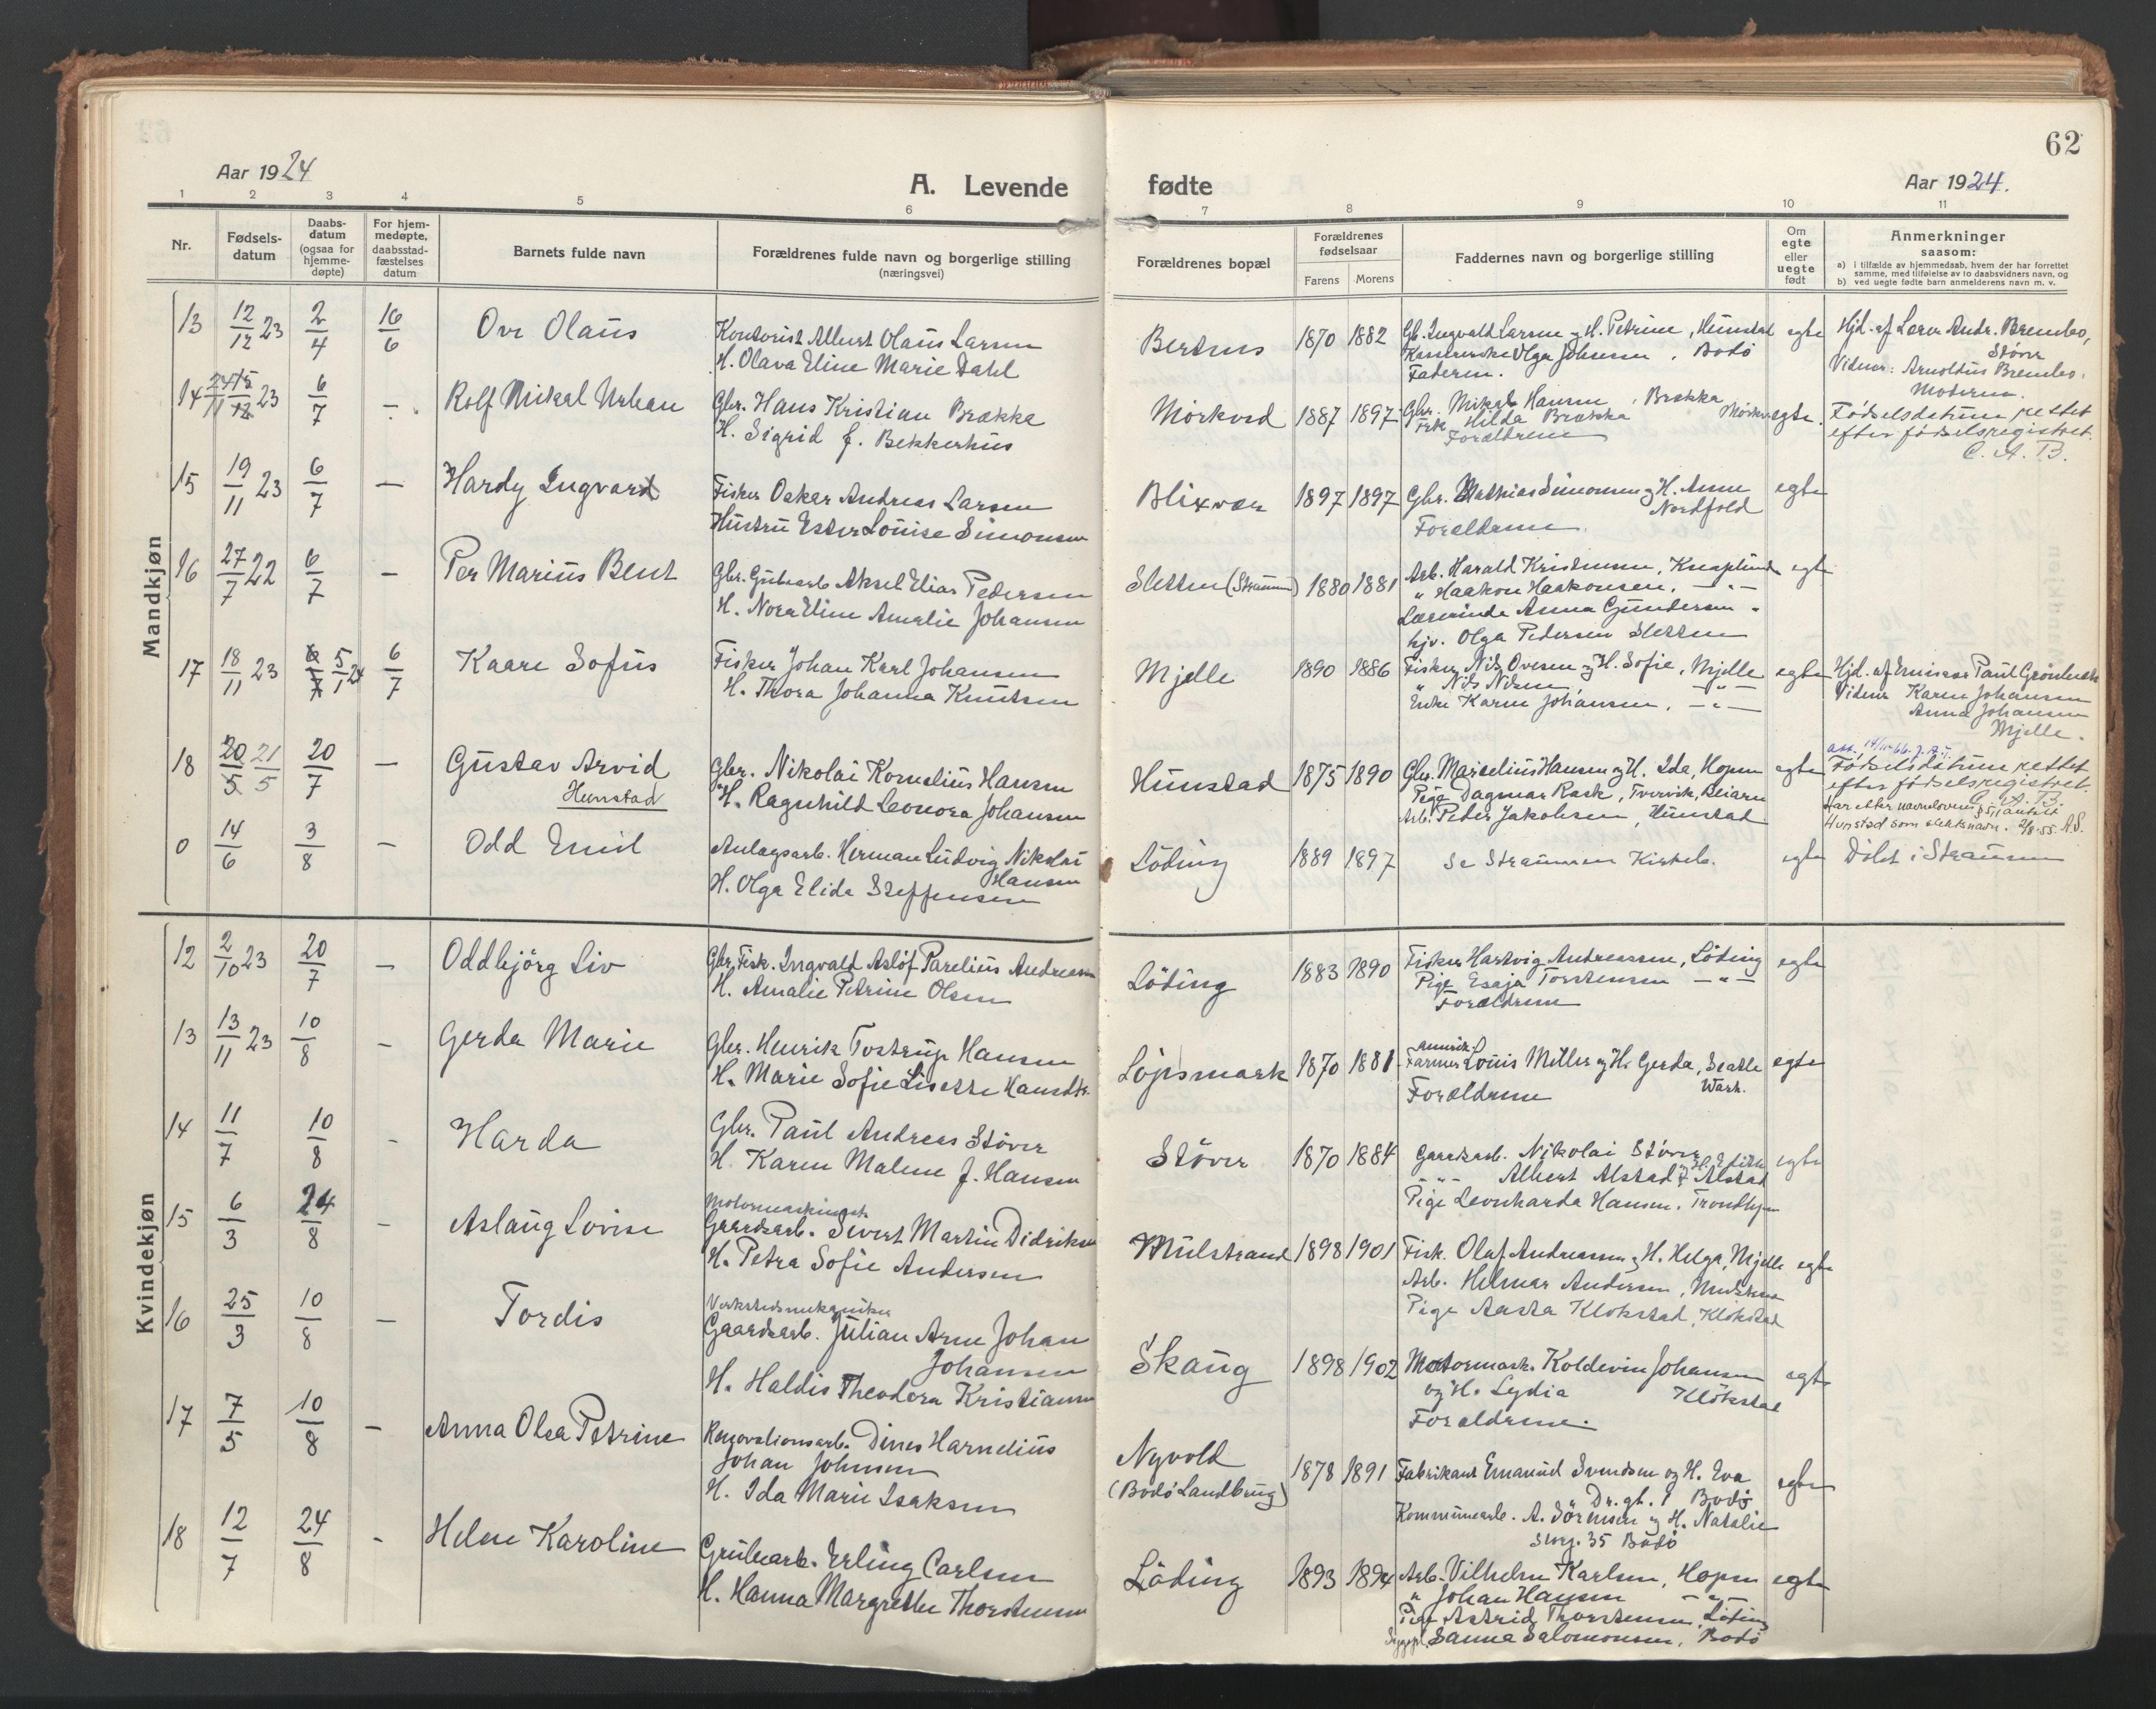 62
Aar 1924
A. Levende
fødte
Aar 1924.
1 2 3 4 5 6 7 8 9 10 11
Nr.
Fødsels-
datum
Daabs-
datum
(ogsaa for
hjemme-
døpte)
For hjem-
medøpte,
daabsstad-
fæstelses
datum
Barnets fulde navn
Forældrenes fulde navn og borgerlige stilling
(næringsvei)
Forældrenes bopæl
Forældrenes
fødselsaar
Farens Morens
Faddernes navn og borgerlige stilling
Om
egte
eller
uegte
født
Anmerkninger
saasom:
a) i tilfælde av hjemmedaab, hvem der har forrettet
samme, med tilføielse av to daabsvidners navn, og
b) ved uegte fødte barn anmelderens navn m. v.
Mandkjøn
13 12/12 23 2/4 16/6 Ove Olaus
Kontorist Albert Olaus Larsen
H. Olava Eline Marie Dahl
Bertnes 1870 1882
Gb. Ingvald Larsen og H. Petrine, Hunstad
Olga Johnsen, Bodö
Faderen.
egte
Hjd. af Lærer Andr. Brembo,
Støver
Vidner: Arnoldus Brembo.
Moderen.
14 24/11 15/12 23 6/7 - Rolf Mikal Urban
Gbr. Hans Kristian Brække
H. Sigrid f. Bekkerhus
Mörkved 1887 1897
Gbr. Mikal Hansen, Brække
Frk. Hilda Brække Mörkv
Forældrene
egte.
Fødselsdatum rettet
efter fødselsregistret.
C. A. B.
15 19/11 23 6/7 - Hardy Ingvard
Fisker Oskar Andreas Larsen
Hustru Ester Louise Simonsen
Blixvær 1897 1897
Gbr. Mathias Simonsen og H. Anne
Nordfold
Forældrene.
egte
16 27/7 22 6/7 - Per Marius Bent
Gbr. Grubearb. Aksel Elias Pedersen
H. Nora Eline Amalie Johansen
Sletten (Straumen) 1880 1881
Arb. Harald Kristensen, Knaplund
" Haakon Haakonsen, - " -
Lærerinde Anna Gundersen "
hjv. Olga Pedersen Sletten
egte
17 18/11 23 6/7 5/1 24 6/7 Kaare Sofus
Fisker Johan Karl Johansen
H. Thora Johanna Knutsen
Mjelle 1890 1886
Fisker Nils Ovesen og H. Sofie, Mjelle
" Nils Nilsen - " -
Enke Karen Johansen, - " -
egte
Hjd. af Emissær Paul Grönbech
Vidner Karen Johansen
Anna Johansen
Mjelle.
18 20/5 21/5 20/7 - Gustav Arvid
Hunstad
Gbr. Nikolai Kornelius Hansen
H. Ragnhild Leonora Johansen
Hunstad 1875 1890
Gbr. Marselius Hansen og H. Ida, Hopen
Pige Dagmar Rask, Tvervik, Beiarn
Arb. Peder Jakobsen, Hunstad
egte
Fødselsdatum rettet
efter fødselsregistret.
C. A. B.
Har etter navnelovens § 5,1 antatt
Hunstad som slektsnavn. 2/8-55. A.S.
0 14/6 3/8 - Odd Emil
Anlægsarb. Herman Ludvig Nikolai
Hansen
H. Olga Elida Steffensen
Löding 1889 1897
Se Straumen Kirkeb.
egte
Döbt i Straumen
Kvindekjøn
12 2/10 23 20/7 - Oddbjörg Liv
Gbr, Fisk. Ingvald Aslof Parelius Andreasen
H. Amalie Petrine Olsen
Löding 1883 1890
Fisker Hartvig Andreassen, Löding
Pige Esaja Torstensen - " -
Forældrene
egte
13 13/11 23 10/8 - Gerda Marie
Gbr. Henrik Tostrup Hansen
H. Marie Sofie Lisette Hansdtr.
Löpsmark 1870 1881
Amerik.
Farmer Louis Miller og H. Gerda, Seatle
Wash.
Forældrene
egte
14 11/7 10/8 - Harda
Gbr. Paul Andreas Støver
H. Karen Malene f. Hansen
Støver 1870 1884
Gaardsarb. Nikolai Støver
- " - Albert Alstad og H. Edith Alstad
Pige Leonharda Hansen. Trondhjem
egte
15 6/3 24/8 - Aslaug Lovise
Motormaskinist
Gaardsarb. Sivert Martin Didriksen
H. Petra Sofie Andersen
Mulstrand 1898 1901
Fisk. Olaf Andreassen og H. Helga, Mjelle
Arb. Helmer Andersen, Mulstran
Pige Aasta Klokstad, Klokstad
egte
16 25/3 10/8 - Tordis
Verkstedsmekaniker
Gaardsarb. Julian Arne Johan
Johansen
H. Haldis Theodora Kristiansen
Skaug 1898 1902
Motormask. Koldevin Johansen
og H. Lydia Klökstad
Forældrene.
egte
17 7/5 10/8 - Anna Olea Petrine
Renovationsarb. Dines Harnelius
Johan Johnsen
H. Ida Marie Isaksen
Nyvold
(Bodö Landbrug) 1878 1891
Fabrikant Emanuel Svendsen og H. Eva
Dr. gt. 8 Bodö
Kommunearb. A. Sörensen og H. Natalie
Storg. 35 Bodö
egte
18 12/7 24/8 - Helene Karoline
Grubearb. Erling Carlsen
H. Hanna Margrethe Thorstensen
Löding 1893 1894
Arb. Vilhelm Karlsen, Hopen
" Johan Hansen - " -
Pige Astrid Thorstensen, Löding
Sygepl. Sanna Salomonsen, Bodö
egte